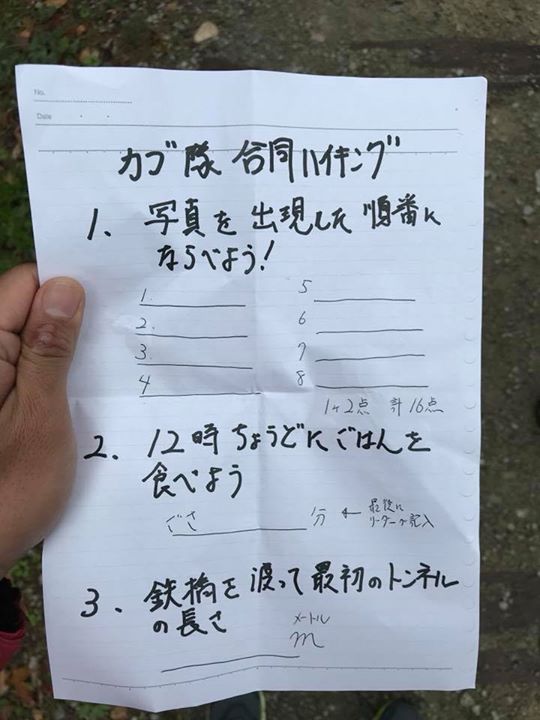 No.
Date
カブ隊 合同ハイキング
1、写真を出現した順番に
ならべよう!
1.
2.
3.
4
5
6
7
8
1ヶ2点 計16点
2、12時ちょうどにごはんを
食べよう
ごさ 分 ← 最後に
リーダーが記入
3、鉄橋を渡って最初のトンネル
の長さ
メートル
m